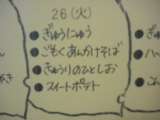 26(火)
●ぎゅうにゅう
●ごもくあんかけそば
●きゅうりのひとしお
●スイートポテト